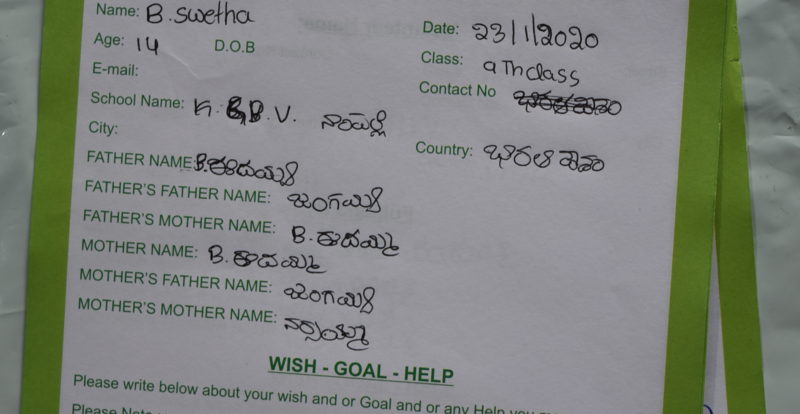 Name: B. Swetha
Date: 23/1/2020
Age: 14 D.O.B
Class: 9Th class
E-mail:
Contact No
School Name: K.G.B.V. నాంపల్లి
City:
Country: భారత దేశం
FATHER NAME: B.
FATHER'S FATHER NAME: జంగయ్య
FATHER'S MOTHER NAME: B. ఈదమ్మ
MOTHER NAME: B. ఈదమ్మ
MOTHER'S FATHER NAME: జంగయ్య
MOTHER'S MOTHER NAME: నర్సమ్మ
WISH - GOAL - HELP
Please write below about your wish and or Goal and or any Help you
Please Note